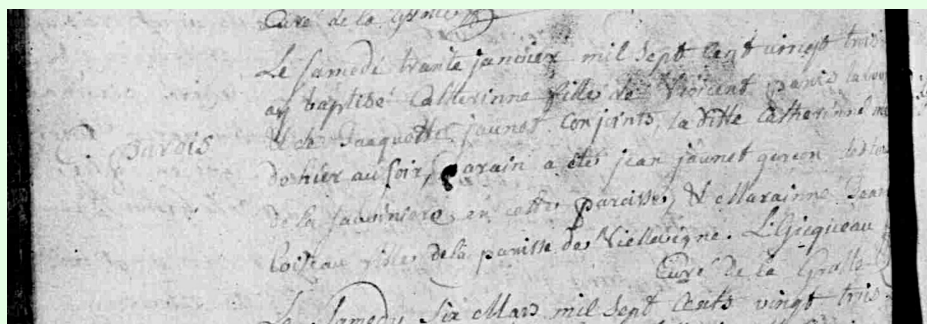 Curé de la Grolle
Le samedi trante janvier mil sept cent vingt trois
ay baptisé Catherinne fille de Vincent parois laboureur
parois
et de Jacquette jaunet conjoints, la ditte Catherinne née
de hier au soir, parain a étés jean jaunet garcon
de la en cette paroisse, et Marainne Jean
loiseau fille de la paroisse de Viellevigne. L Gicqueau
Curé de la Grolle
Le Samedy Six Mars mil sept cents vingt trois